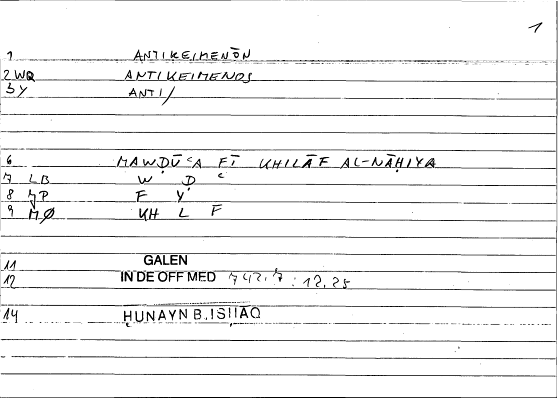 1
1 ANTIKEIMENŌN
2 WQ ANTIKEIMENOS
3 Y ANTI/
6 MAWḌŪʿA FĪ KHILĀF AL-NĀḤIYA
7 LB W Ḍ ʿ
8 MP F Y
9 MØ KH L F
11 GALEN
12 IN DE OFF MED 742.7 : 12.25
14 ḤUNAYN B. ISḤĀQ